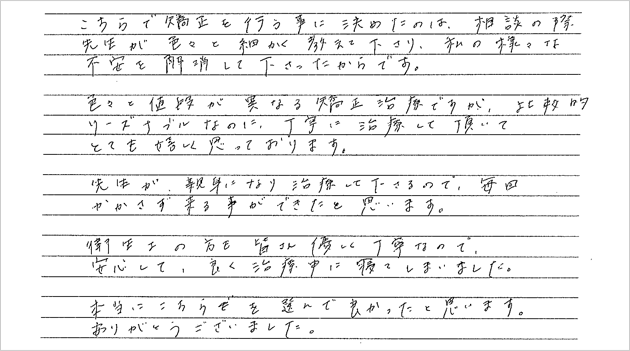 こちらで矯正を行う事に決めたのは、相談の際
先生が色々と細かく教えて下さり、私の様々な
不安を解消して下さったからです。
色々と値段が異なる矯正治療ですが、比較的
リーズナブルなのに、丁寧に治療して頂いて
とても嬉しく思っております。
先生が、親身になり治療して下さるので、毎回
かかさず来る事ができたと思います。
衛生士の方も皆さん優しく丁寧なので、
安心して、良く治療中に寝てしまいました。
本当にこちらでを選んで良かったと思います。
ありがとうございました。